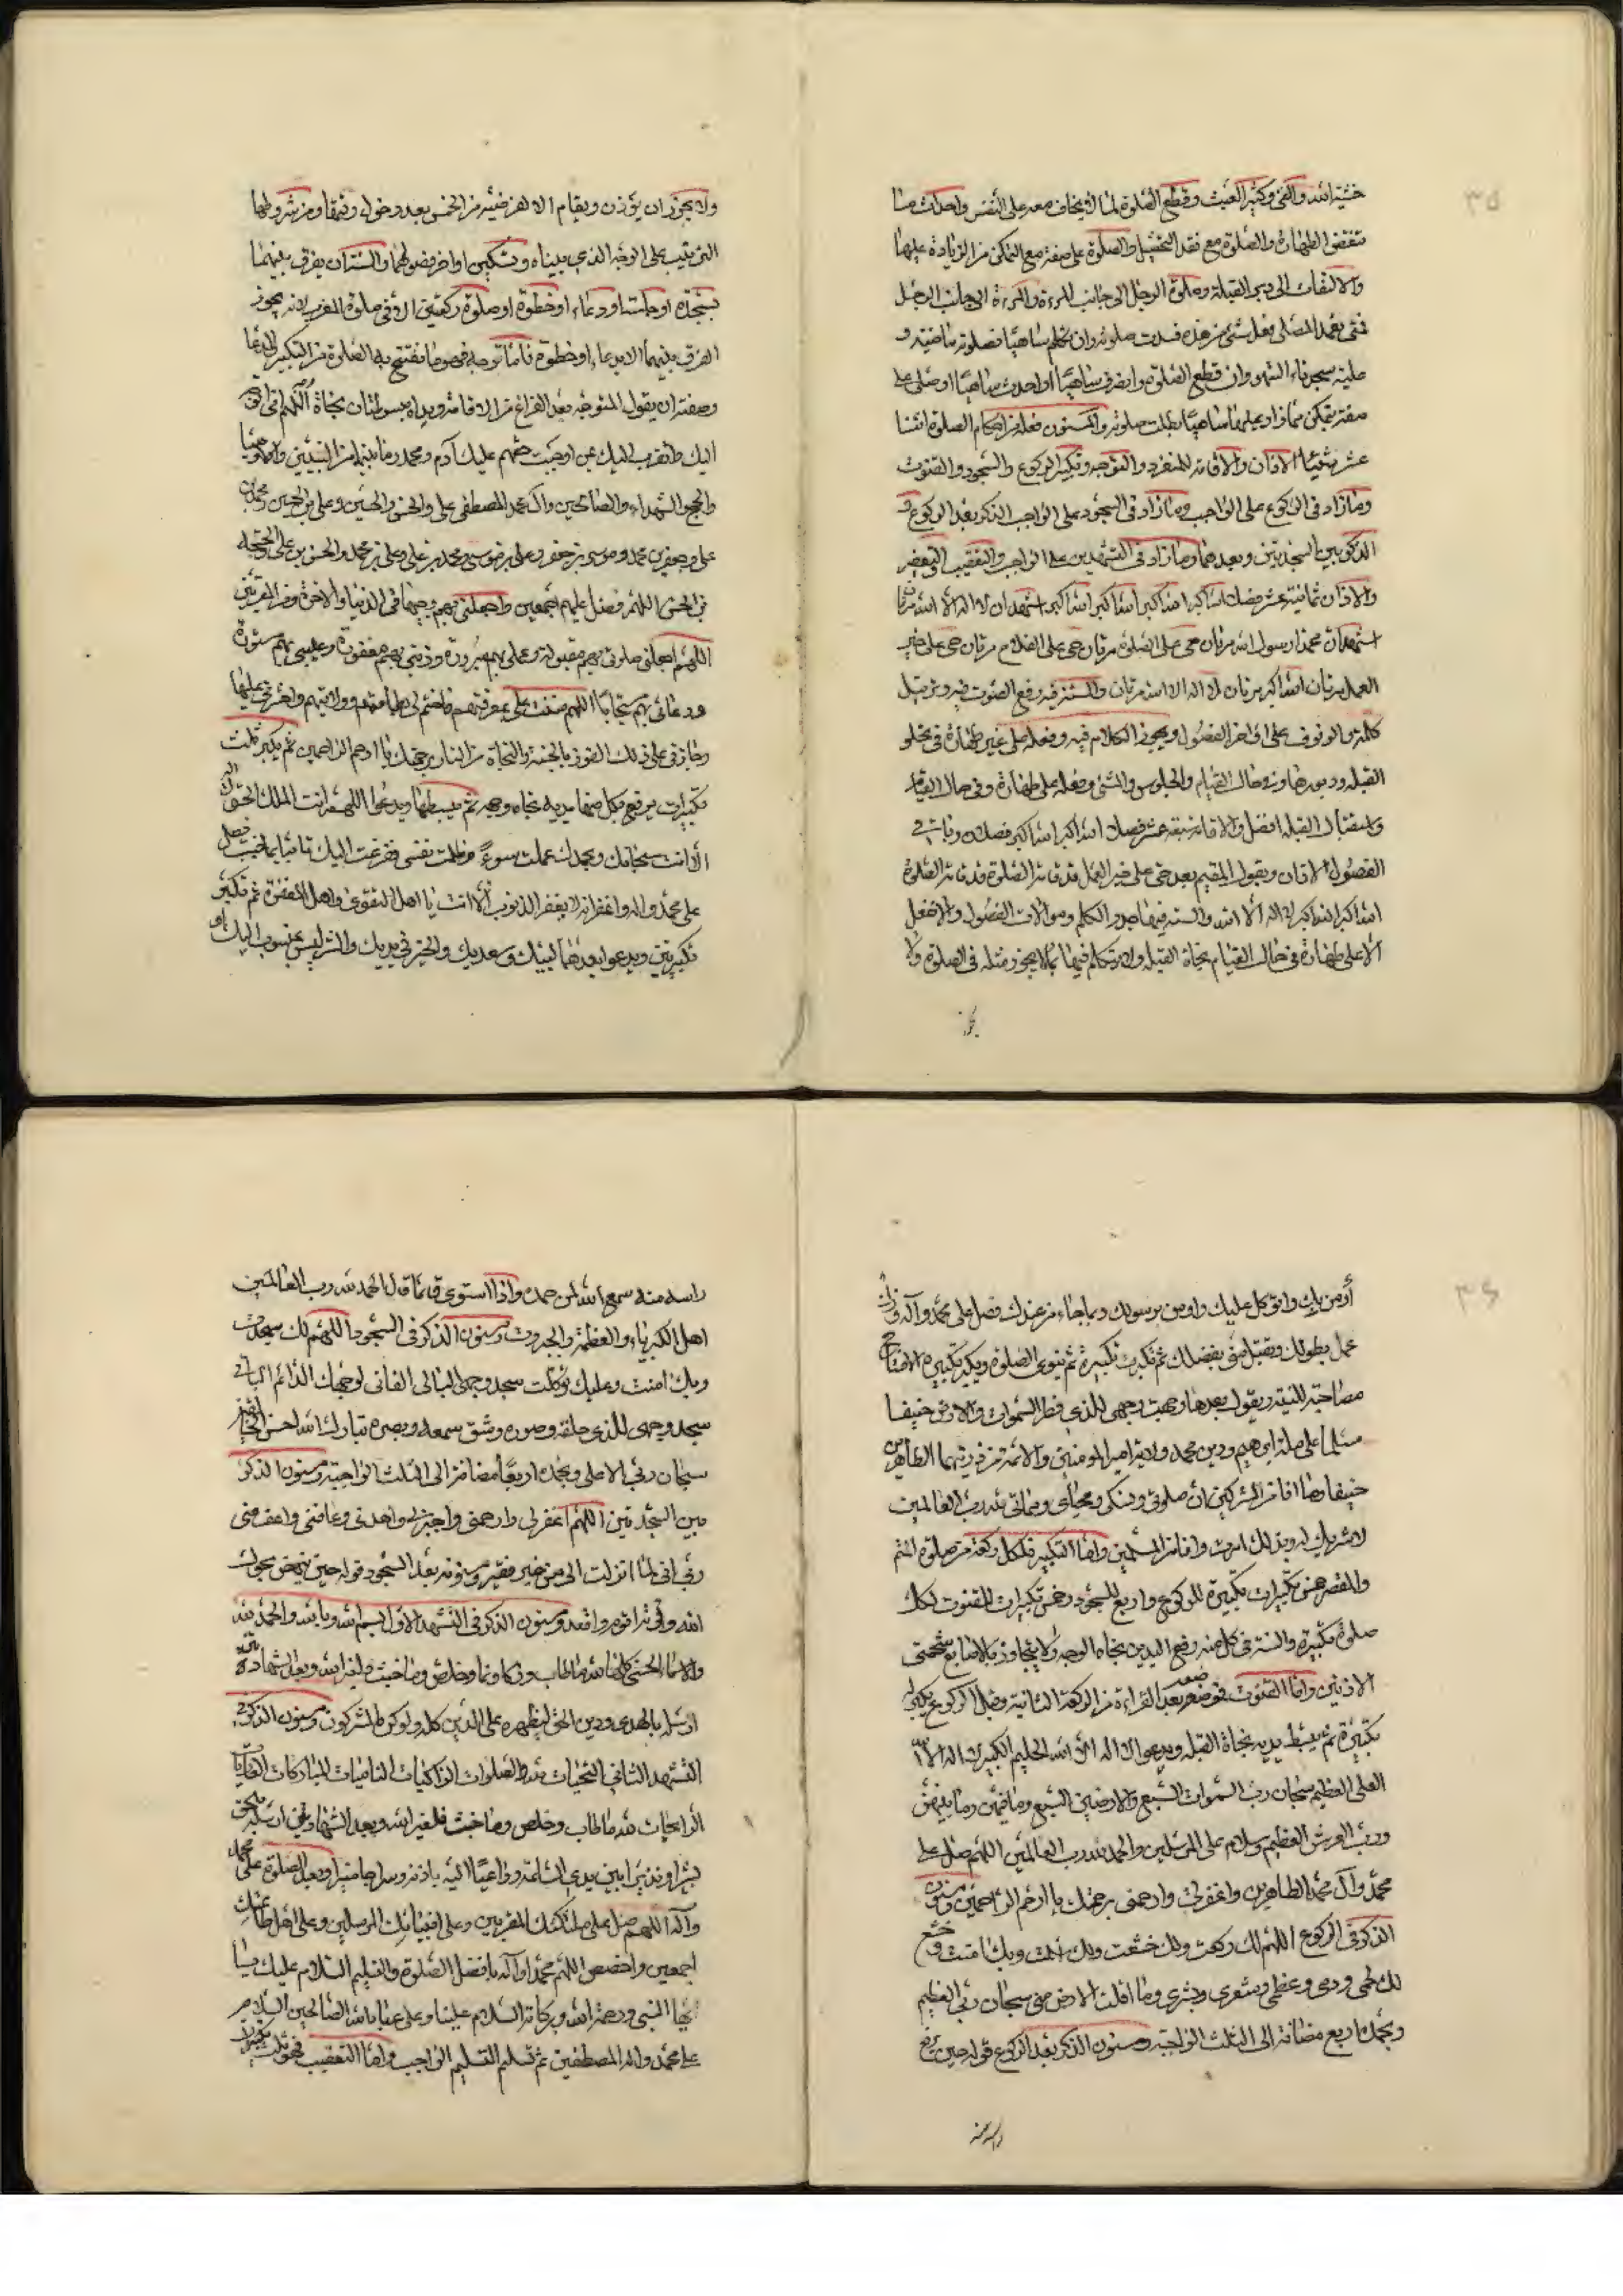 ٣٥
خشية الله والقئ وكثير العبث وقطع الصلوة لما لا يخاف معه على النفس واحداث ما
ينقض الطهارة والصلوة مع فقد التحصيل والصلوة على صفة مع التمكن من الزيادة عليها
والالتفات الى دبر القبلة وصلوة الرجل الى جانب المرءة والمرءة الى جانب الرجل
فمتى تعمد المصلى فعل شئ من هذه فسدت صلوته وان تكلم ساهيا فصلوته ماضية و
عليه سجدتاء السهو وان قطع الصلوة وانصرف ساهيا او احدث ساهيا او صلى على
صفة يتمكن مما زاد عليها ساهيا بطلت صلوته والمسنون فعله من احكام الصلوة اثنا
عشر شيئا الاذان والاقامة للمنفرد والتوجه وتكبير الركوع والسجود والقنوت
وما زاد فى الركوع على الواجب وما زاد فى السجود على الواجب الذكر بعد الركوع و
الذكر بين السجدتين وبعدهما وما زاد فى التشهدين على الواجب والتعقيب والتعفير
والاذان ثمانية عشر فصلا الله اكبر الله اكبر الله اكبر الله اكبر اشهد ان لا اله الا الله مرتان
اشهد ان محمدا رسول الله مرتان حى على الصلوة مرتان حى على الفلاح مرتان حى على خير
العمل مرتان الله اكبر مرتان لا اله الا الله مرتان والسنة فيه رفع الصوت فيه وترتيل
كلمه والوقوف على اواخر الفصول ويجوز الكلام فيه وفعله على غير طهارة وفى تجاه
القبله ودبورها وفى حال القيام والجلوس والمشى وفعله على طهارة وفى حال القيام
واستقبال القبله افضل والاقامة سبعة عشر فصلا الله اكبر الله اكبر فصلان وباقى
الفصول الاذان ويقول المقيم بعد حى على خير العمل قد قامت الصلوة قد قامت الصلوة
الله اكبر الله اكبر لا اله الا الله والسنة فيها حدر الكلم وموالات الفصول ولا تفعل
الا على طهارة فى حال القيام تجاه القبله ولا يتكلم فيها بما لا يجوز مثله فى الصلوة ولا
يجوز
ولا يجوز ان يؤذن ويقام الا لفريضة من الخمس بعد دخول وقتها ومن شروطها
الترتيب على الوجه الذى بيناه وتسكين اواخر فصولهما والسنة ان يفرق بينهما
بسجدة او جلسة او دعاء او خطوة او صلوة ركعتين الا فى صلوة المغرب لانه يجوز
الفرق بينهما الا بدعاء او خطوة فاما توجه فهو ما تفتتح به الصلوة من التكبير والدعا
وصفته ان يقول المتوجه بعد الفراغ من الاقامة ويداه مبسوطتان تجاه اللهم انى اتوجه
اليك واتقرب اليك بمن اوجبت حقهم عليك آدم ومحمد وما بينهما من النبيين والاوصيا
والحجج الشهداء والصالحين وآل محمد المصطفى على والحسن والحسين وعلى بن الحسين ومحمد بن
على وجعفر بن محمد وموسى بن جعفر وعلى بن موسى ومحمد بن على وعلى بن محمد والحسن بن على والحجة
بن الحسن اللهم فصل عليهم اجمعين واجعلنى بهم وجيها فى الدنيا والاخرة ومن المقربين
اللهم اجعل صلوتى بهم مقبولة وعملى بهم مبرورة وذنبى بهم مغفورة وعيبى بهم مستورة
ودعائى بهم مستجابا اللهم مننت على بمعرفتهم فاختم لى بطاعتهم وولايتهم واحشرنى عليها
وجازنى على ذلك الفوز بالجنة والنجاة من النار برحمتك يا ارحم الراحمين ثم يكبر ثلث
تكبيرات يرفع بكل منها يديه تجاه وجهه ثم يبسطها ويدعوا اللهم انت الملك الحق لا اله
الا انت سبحانك وبحمدك عملت سوءً وظلمت نفسى ففزعت اليك تائبا مما جنيت فصل
على محمد واله واغفر انه لا يغفر الذنوب الا انت يا اهل التقوى واهل المغفرة ثم تكبر
تكبيرتين ويدعوا بعدهما لبيك وسعديك والخير فى يديك والشر ليس بمنسوب اليك
٣٦
أومن بك واتوكل عليك واومن برسولك وبما جاء من عندك فصل على محمد وآله وزك
عملى بطولك وتقبل منى بفضلك ثم تكبر تكبيرة ثم ينوى الصلوة ويكبر تكبيرة الافتتاح
مصاحبة للنية ويقول بعدها وجهت وجهى للذى فطر السموات والارض حنيفا
مسلما على ملة ابرهيم ودين محمد وولاية امير المومنين والائمة من ذريتهما الطاهرين
حنيفا وما انا من المشركين ان صلوتى ونسكى ومحياى ومماتى لله رب العالمين
لا شريك له وبذلك امرت وانا من المسلمين واما التكبير فلكل ركعة من صلوة التم
والقصر خمس تكبيرات تكبيرة للركوع واربع للسجود وخمس تكبيرات للقنوت لكل
صلوة تكبيرة والسنة فى كل منه رفع اليدين تجاه الوجه ولا يتجاوز بالاصابع شحمتى
الاذنين واما القنوت فموضعه بعد القراءة من الركعة الثانية وقبل الركوع يكبر له
تكبيرة ثم يبسط يديه تجاه القبله ويدعوا لا اله الا الله الحليم الكبير لا اله الا الله
العلى العظيم سبحان رب السموات السبع والارضين السبع وما فيهن وما بينهن
ورب العرش العظيم وسلام على المرسلين والحمد لله رب العالمين اللهم صل على
محمد وآل محمد الطاهرين واغفر لى وارحمنى برحمتك يا ارحم الراحمين ومسنون
الذكر فى الركوع اللهم لك ركعت ولك خشعت ولك اسلمت وبك امنت و خشع
لك لحمى ودمى وعظمى وشعرى وبشرى وما اقلت الارض منى سبحان ربى العظيم
وبحمده اربع مضافة الى الثلث الواجبة ومسنون الذكر بعد الركوع قوله حين يرفع
راسه منه
راسه منه سمع الله لمن حمده واذا استوى قائما قال الحمد لله رب العالمين
اهل الكبرياء والعظمة والجبروت ومسنون الذكر فى السجود اللهم لك سجدت
وبك امنت وعليك توكلت سجد وجهى البالى الفانى لوجهك الدائم الباقى
سجد وجهى للذى خلقه وصوره وشق سمعه وبصره تبارك الله احسن الخالقين
سبحان ربى الاعلى وبحمده اربعا مضافة الى الثلث الواجبة ومسنون الذكر
بين السجدتين اللهم اغفر لى وارحمنى واجبرنى واهدنى وعافنى واعف عنى
ربى انى لما انزلت الى من خير فقير ومسنونه بعد السجود قوله حين ينهض بحول
الله وقوته اقوم واقعد ومسنون الذكر فى التشهد الاول بسم الله وبالله والحمد لله
والاسماء الحسنى كلها لله ما طاب وزكا ونما وخلص وما خبث فلغير الله وبعد الشهادتين
ارسله بالهدى ودين الحق ليظهره على الدين كله ولو كره المشركون ومسنون الذكر فى
التشهد الثانى التحيات لله والصلوات الزاكيات الناميات المباركات الغاديات
الرايحات لله ما طاب وخلص وما خبث فلغير الله وبعد الشهادتين ارسله بالحق
بشيرا ونذيرا بين يدى الساعة وداعيا اليه باذنه وسراجا منيرا وبعد الصلوة على محمد
وآله اللهم صل على ملائكتك المقربين وعلى انبيائك المرسلين وعلى اهل طاعتك
اجمعين واخصص اللهم محمدا وآله بافضل الصلوة والتسليم السلام عليك يا
ايها النبى ورحمة الله وبركاته السلام علينا وعلى عباد الله الصالحين السلام
على محمد واله المصطفين ثم تسلم التسليم الواجب واما التعقيب فهو ثلث